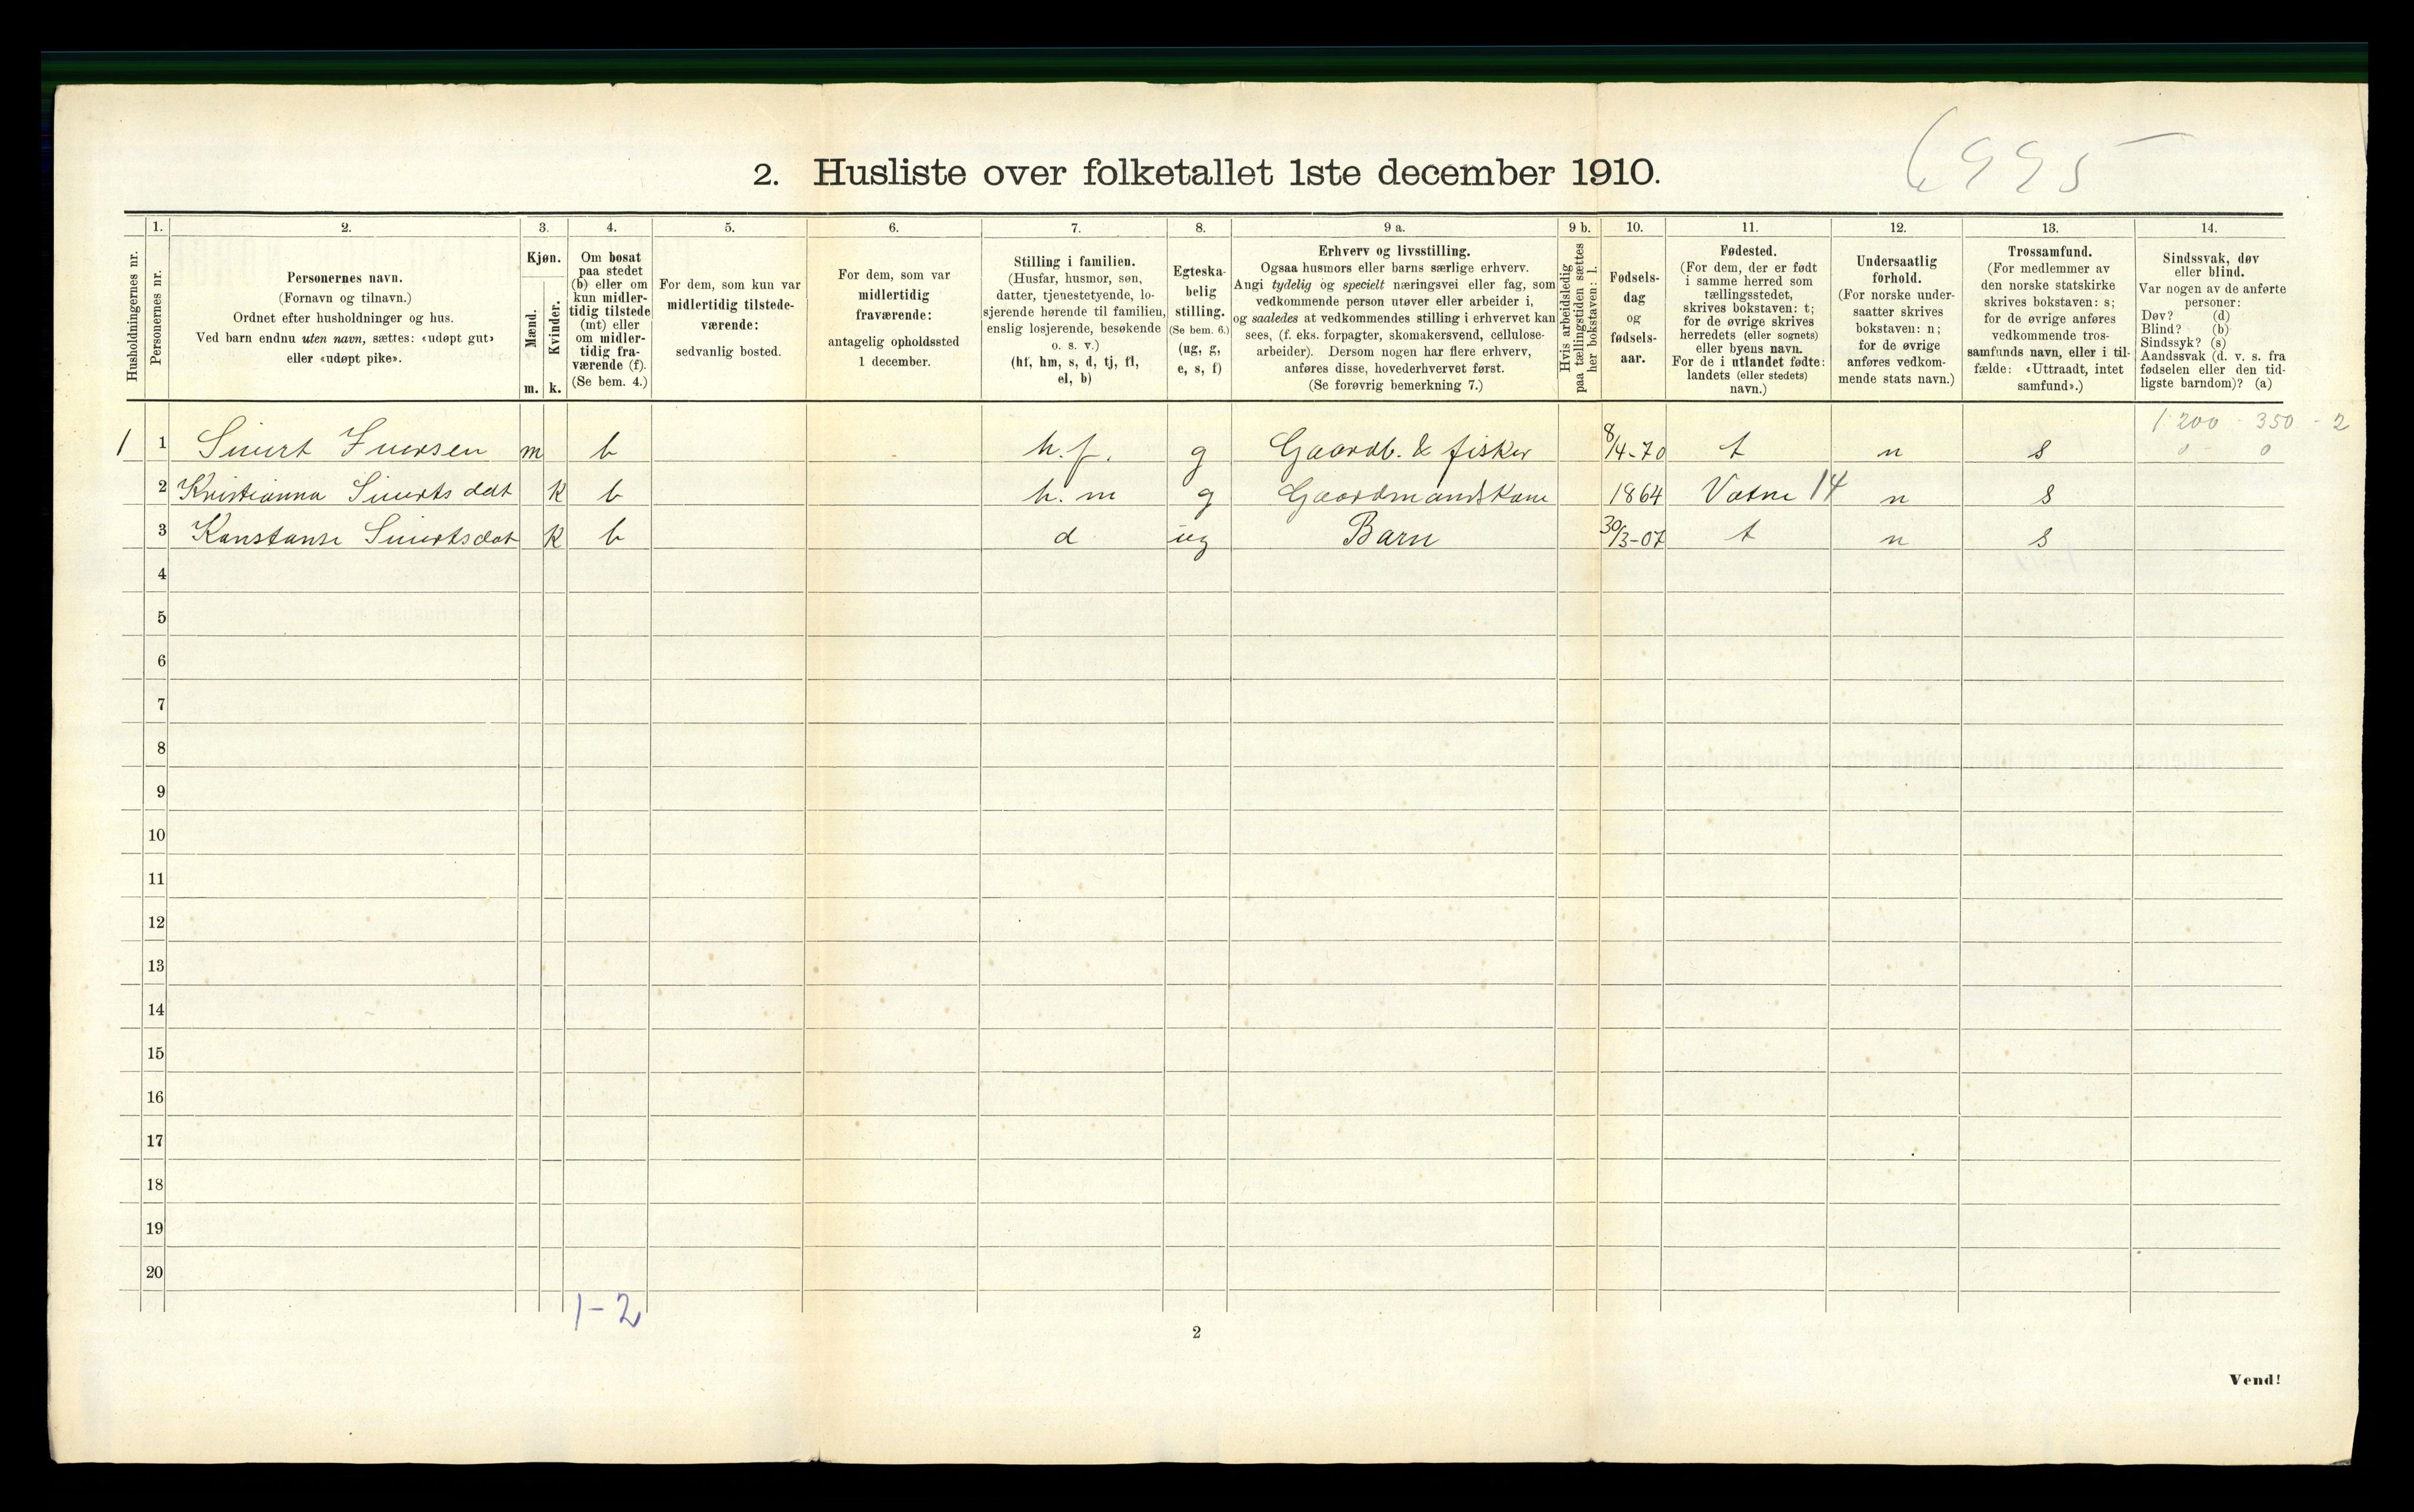 6995
2. Husliste over folketallet 1ste december 1910.
Husholdningernes nr.
1.
Personernes nr.
2.
Personernes navn.
(Fornavn og tilnavn.)
Ordnet efter husholdninger og hus.
Ved barn endnu uten navn, sættes: «udøpt gut»
eller «udøpt pike».
3.
Kjøn.
Mænd.
Kvinder.
m. k.
4.
Om bosat
paa stedet
(b) eller om
kun midler-
tidig tilstede
(mt) eller
om midler-
tidig fra-
værende (f).
(Se bem. 4.)
5.
For dem, som kun var
midlertidig tilstede-
værende:
sedvanlig bosted.
6.
For dem, som var
midlertidig
fraværende:
antagelig opholdssted
1 december.
7.
Stilling i familien.
(Husfar, husmor, søn,
datter, tjenestetyende, lo-
sjerende hørende til familien,
enslig losjerende, besøkende
o. s. v.)
(hf, hm, s, d, tj, fl,
el, b)
8.
Egteska-
belig
stilling.
(Se bem. 6.)
(ug, g,
e, s, f)
9 a.
Erhverv og livsstilling.
Ogsaa husmors eller barns særlige erhverv.
Angi tydelig og specielt næringsvei eller fag, som
vedkommende person utøver eller arbeider i,
og saaledes at vedkommendes stilling i erhvervet kan
sees, (f. eks. forpagter, skomakersvend, cellulose-
arbeider). Dersom nogen har flere erhverv,
anføres disse, hovederhvervet først.
(Se forøvrig bemerkning 7.)
9 b.
Hvis arbeidsledig
paa tællingstiden sættes
her bokstaven: l.
10.
Fødsels-
dag
og
fødsels-
aar.
11.
Fødested.
(For dem, der er født
i samme herred som
tællingsstedet,
skrives bokstaven: t;
for de øvrige skrives
herredets (eller sognets)
eller byens navn.
For de i utlandet fødte:
landets (eller stedets)
navn.)
12.
Undersaatlig
forhold.
(For norske under-
saatter skrives
bokstaven: n;
for de øvrige
anføres vedkom-
mende stats navn.)
13.
Trossamfund.
(For medlemmer av
den norske statskirke
skrives bokstaven: s;
for de øvrige anføres
vedkommende tros-
samfunds navn, eller i til-
fælde: «Uttraadt, intet
samfund».)
14.
Sindssvak, døv
eller blind.
Var nogen av de anførte
personer:
Døv? (d)
Blind? (b)
Sindssyk? (s)
Aandssvak (d. v. s. fra
fødselen eller den tid-
ligste barndom)? (a)
1200 - 350 - 2
0 - 0
1 1 Siuert Iversen m b h.f. g Gaardb. & fisker 8/4-70 t n s
2 Kristianna Siuerts dat k b h.m g GaardmandsKone 1864 Vatne 14 n s
3 Konstanse Siuertsdat k b d ug Barn 30/3-07 t n s
4
5
6
7
8
9
10
11
12
13
14
15
16
17
18
19
20
1-2
2
Vend!